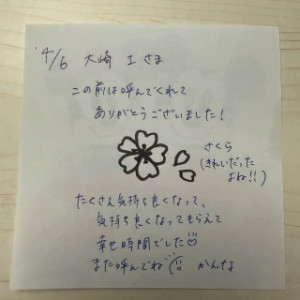 4/6 大崎 I さま
この前は呼んでくれて
ありがとうございました!
さくら
(きれいだった
よね!!)
たくさん気持ち良くなって、
気持ち良くなってもらえて
幸せ時間でした
また呼んでね かんな